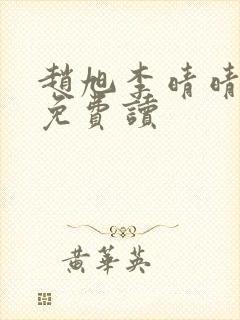 趙旭李晴晴
免費讀
黃華英